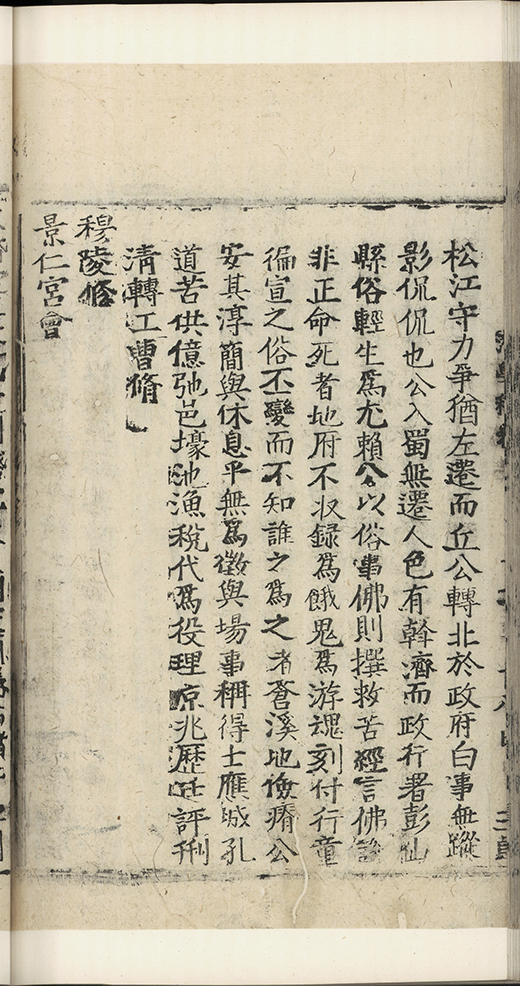 松江守力爭猶左遷而丘公轉北於政府白事無蹤
影侃侃也公入蜀無遷人色有斡濟而政行署彭仙
縣俗輕生為尤賴公以俗事佛則撰救苦經言佛
非正命死者地府不収録為餓鬼為游魂刻付行童
徧宣之俗丕變而不知誰之為之者蒼溪地儉瘠公
安其淳簡與休息平無為徵與場事稱得士應城孔
道苦供億弛邑壕池漁稅代為役理京兆歷廷評刑
清轉工曹脩
穆陵脩
景仁宮會